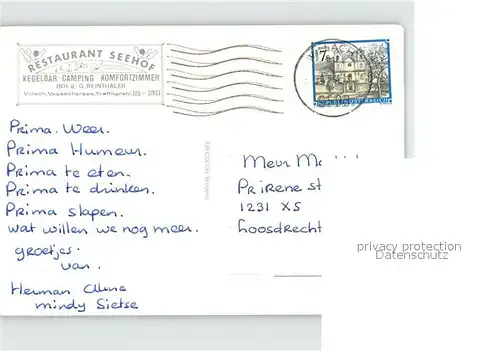 RESTAURANT SEEHOF
KEGELBAR-CAMPING KOMFORTZIMMER
INH. K. G. REINTHALER
7
REPUBLIK ÖSTERREICH
Prima Weer.
Prima Humeur.
Prima te eten.
Prima te drinken.
Prima slapen.
wat willen we nog meer.
groetjes.
van.
Herman
Mindy Sietse
Prirene st
1231 XS
Loosdrecht
privacy protection
Datenschutz